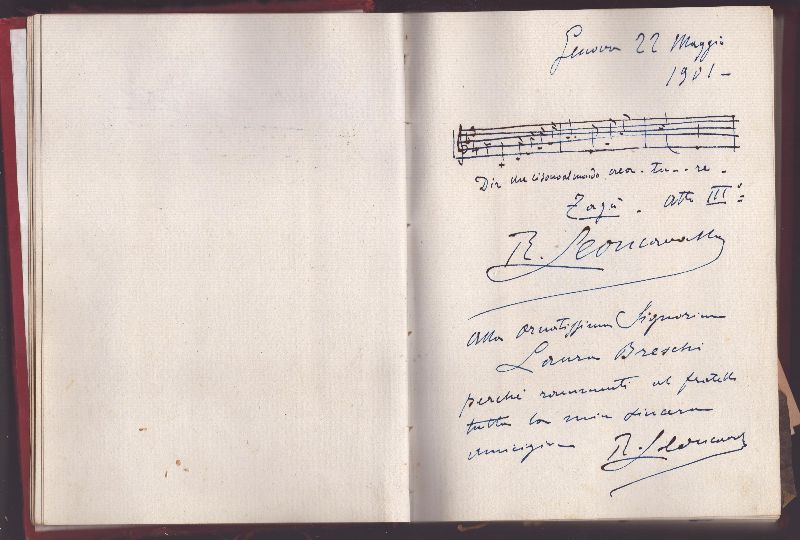 Genova 22 Maggio
1901 -
Dir che ci sono al mondo crea - tu - - re -
Zazà. Atto III°:
R. Leoncavallo
Alla ornatissima Signorina
Laura Breschi
perchè rammenti al fratello
tutta la mia sincera
amicizia R. Leoncavallo